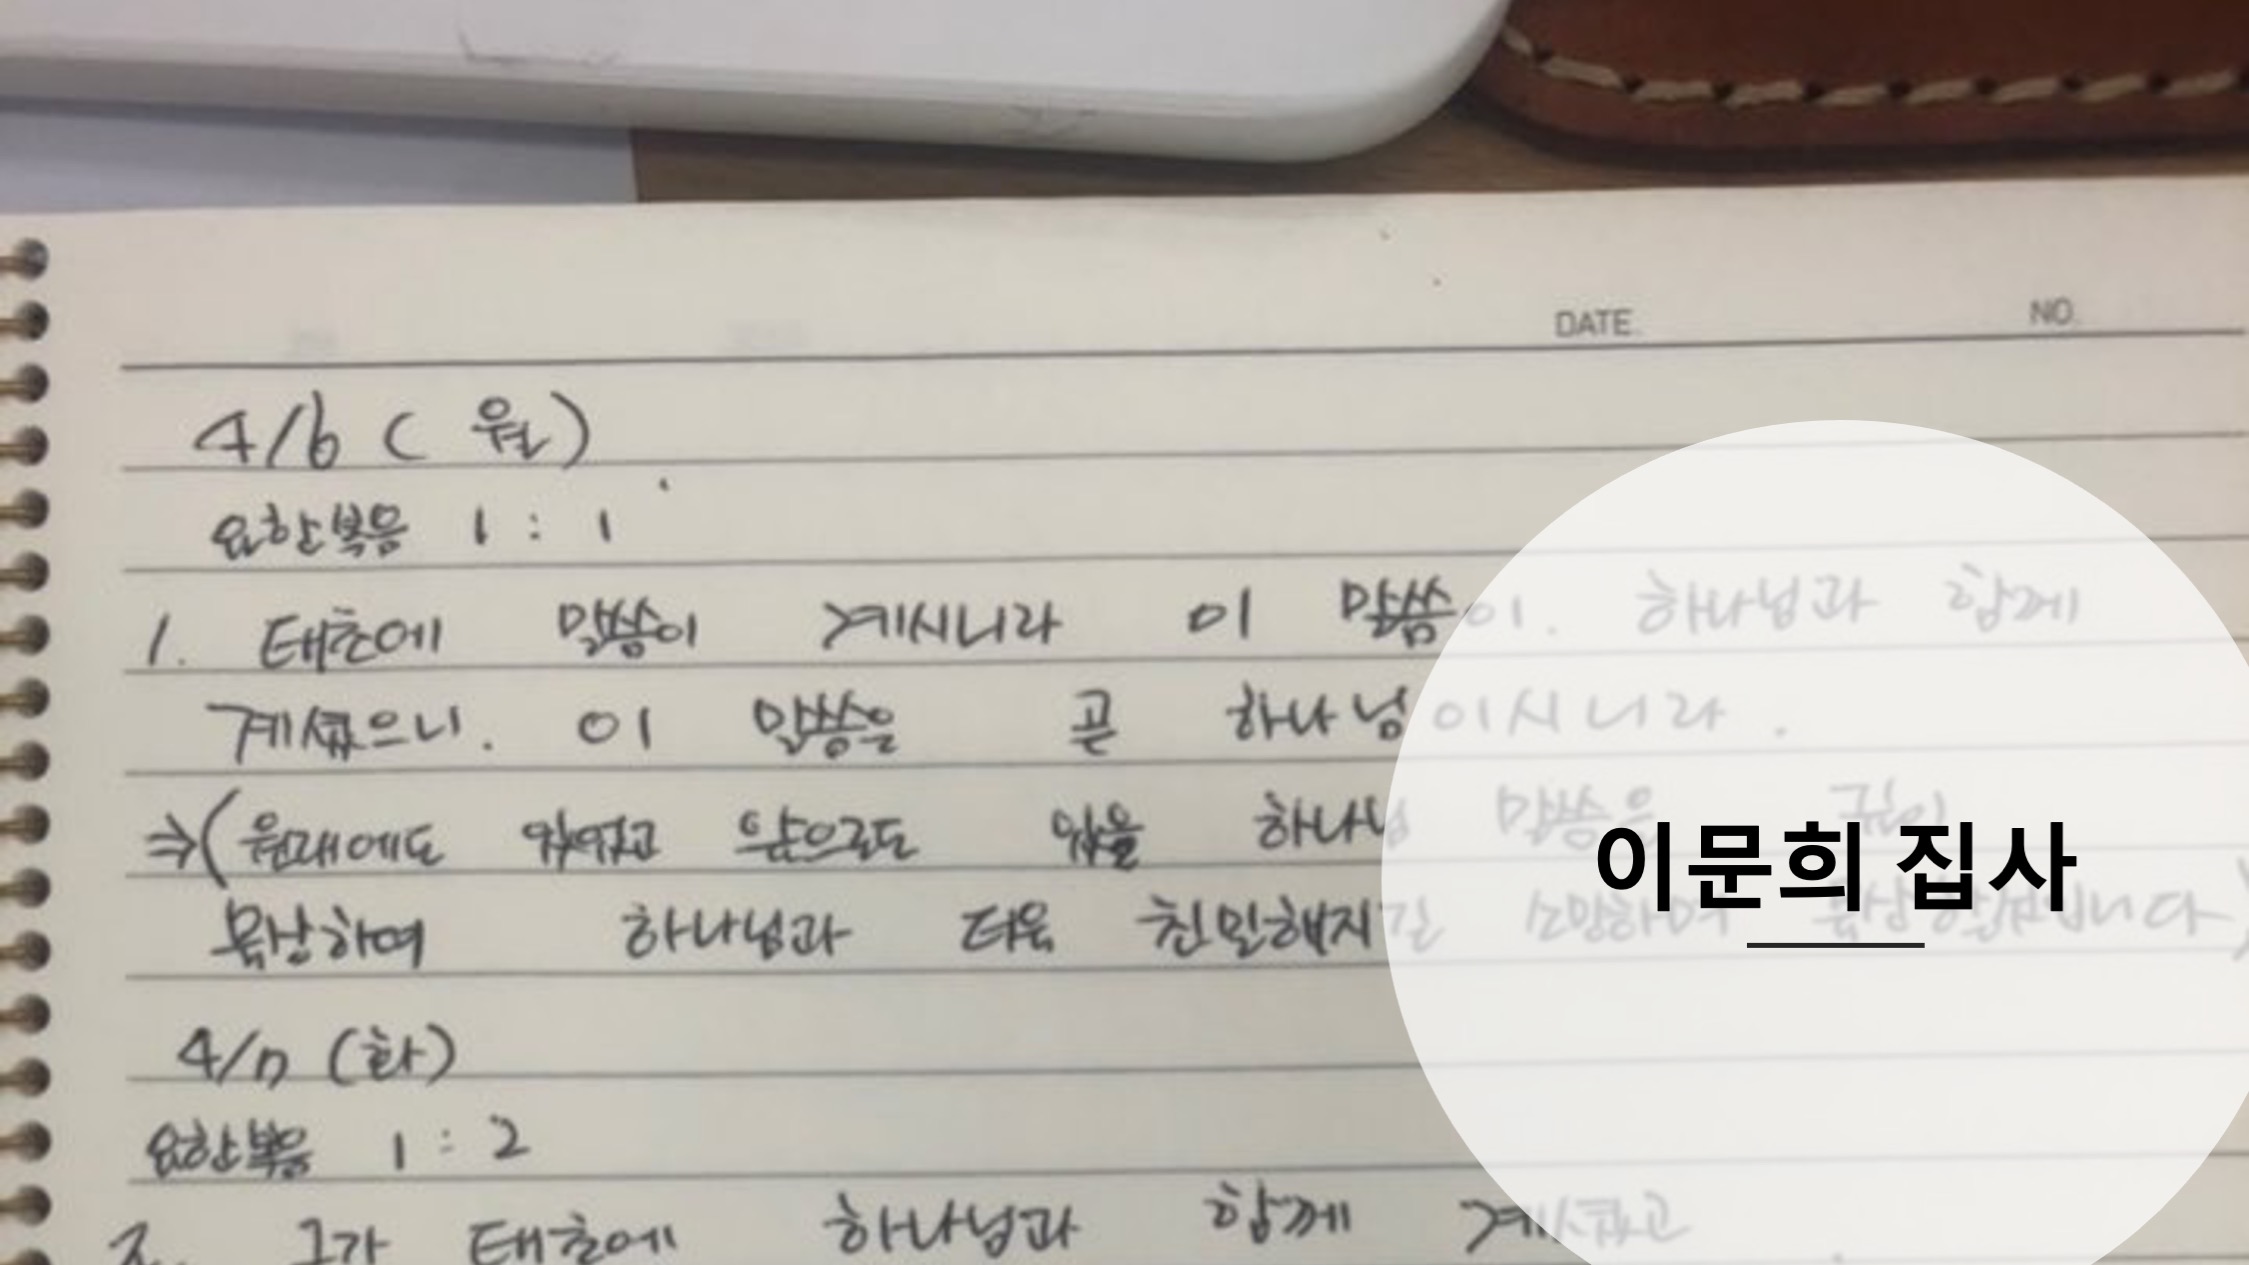 DATE. NO.
4/6 (월)
요한복음 1 : 1
1. 태초에 말씀이 계시니라 이 말씀이. 하나님과 함께
계셨으니. 이 말씀은 곧 하나님이시니라.
⇒( 원래에도 있었고 앞으로도 있을 하나님 말씀을 깊이
묵상하여 하나님과 더욱 친밀해지길 소망하며 묵상 합니다)
이문희 집사
4/7 (화)
요한복음 1 : 2
2. 그가 태초에 하나님과 함께 계셨고